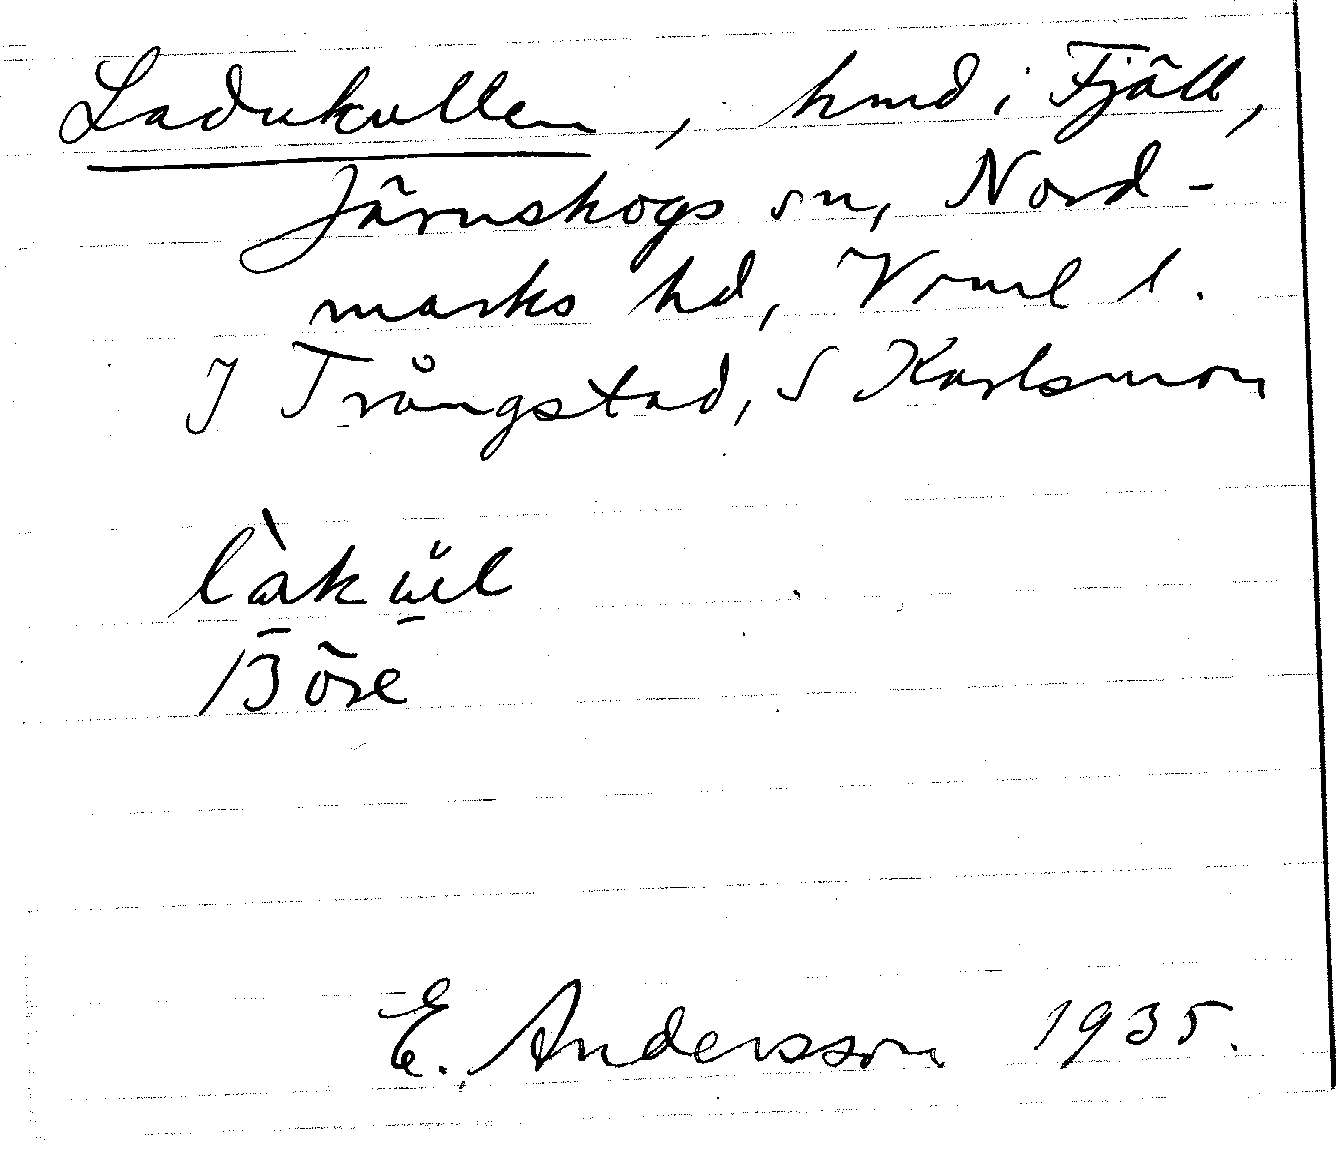 Ladukullen, hmd i Fjäll,
Järnskogs sn, Nord-
marks hd, Vrml l.
I Trångstad, S Karlsmon
E. Andersson 1935.